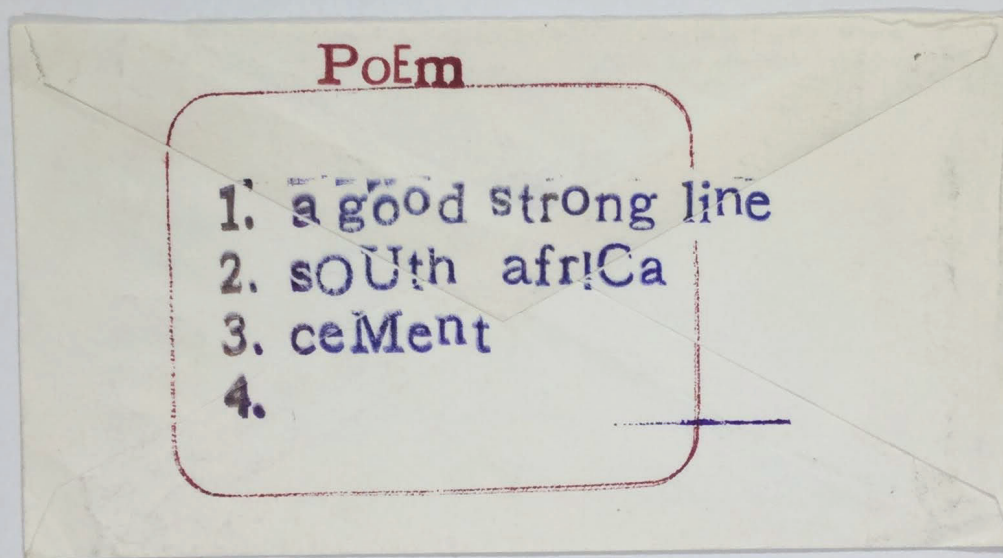 PoEm
1. a good strong line
2. sOUth afrICa
3. ceMent
4.